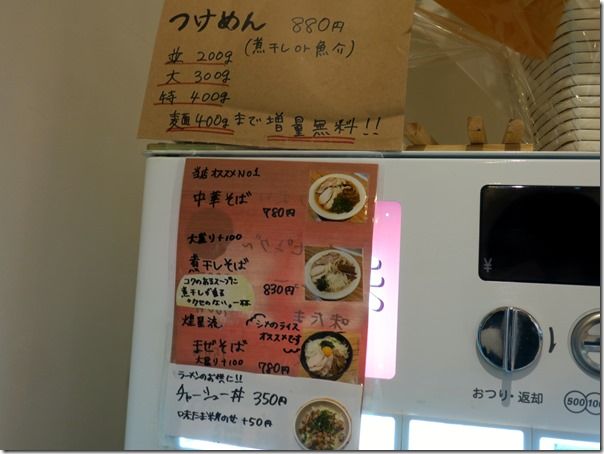 つけめん 880円
(煮干し or 魚介)
並 200g
大 300g
特 400g
麺400gまで増量無料!!
当店オススメNo1
中華そば
780円
大盛り+100
煮干しそば
830円
コクのあるスープに
煮干しが香る
クセのない一杯
煌星流
〆のライス
オススメです
まぜそば
大盛り+100
780円
ラーメンのお供に!!
チャーシュー丼 350円
味たま半身のせ +50円
味たま
¥
おつり・返却
500